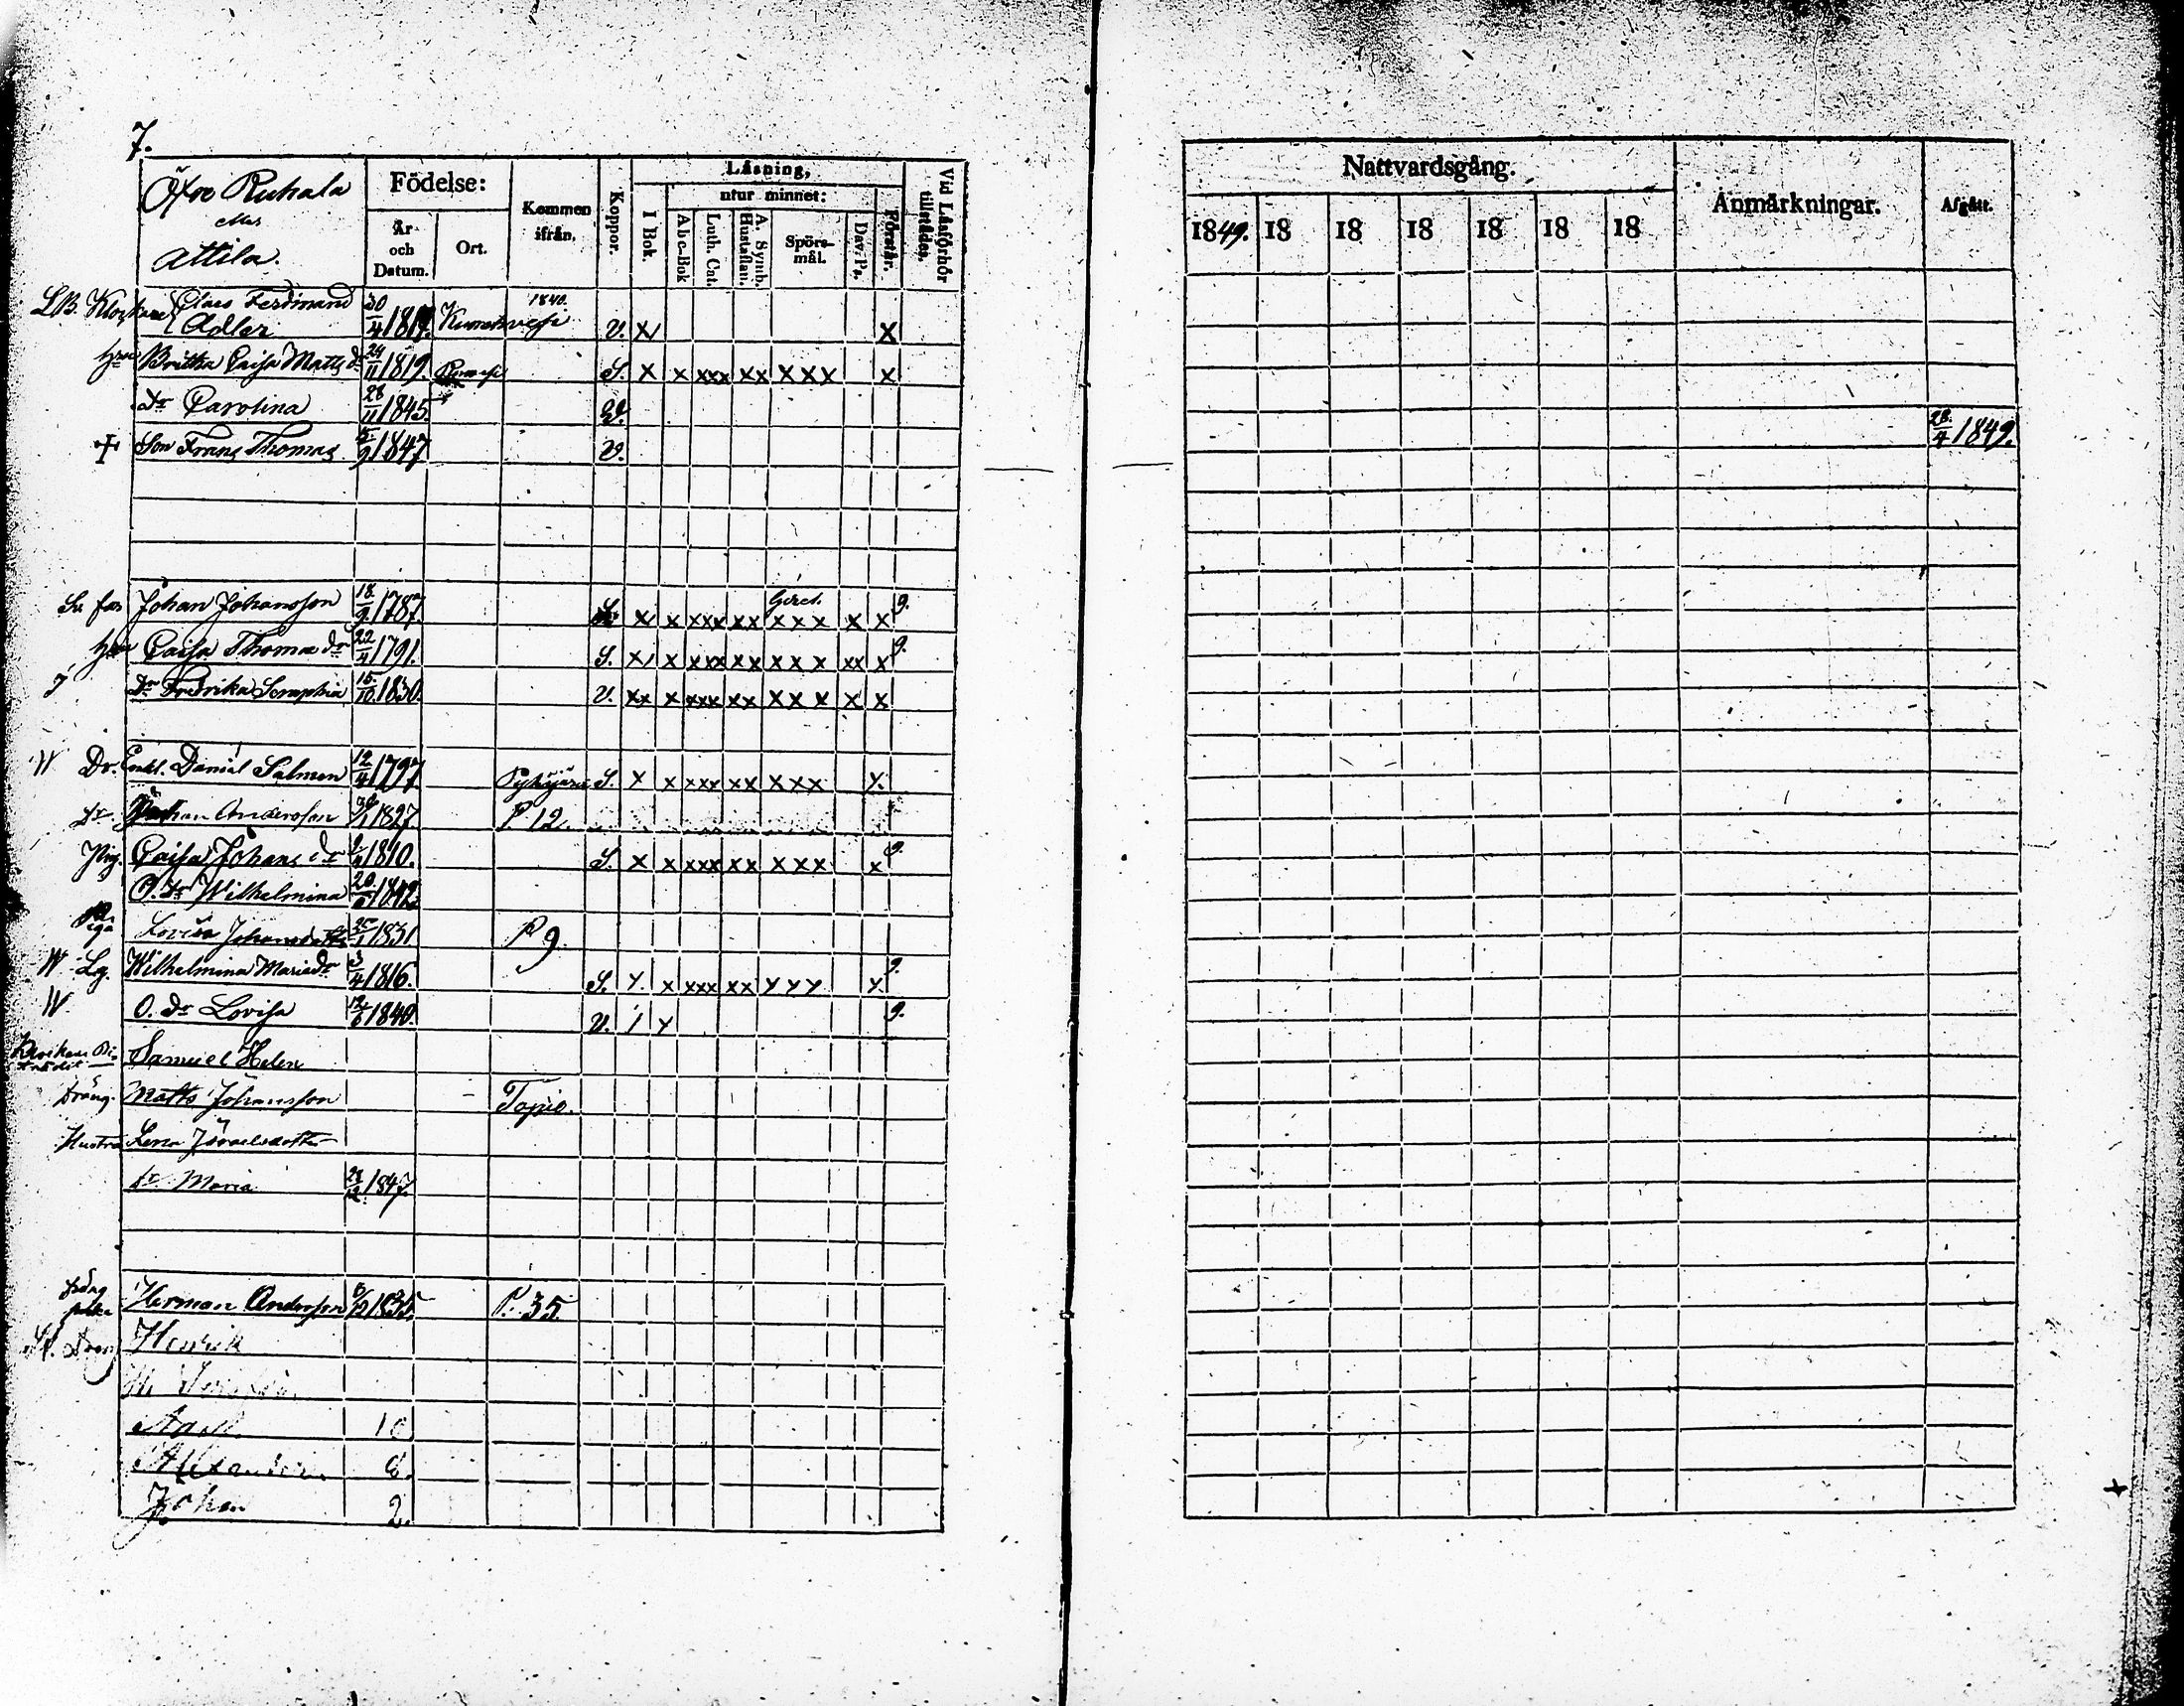 7.
Öfre Ruhala
eller
Attila.
Födelse:
År och Datum.
Ort.
Kommen ifrån.
Koppor.
Läsning,
I Bok.
utur minnet:
Abc-Bok
Luth. Cat.
A. Symb. Hustaflan.
Spörs-mål.
Dav. Ps.
Förstår.
Vid Läsförhör tillstädes.
Nattvardsgång.
1849. 18 18 18 18 18 18
Anmärkningar.
Afgått.
LB. Klockare Claes Ferdinand 1840.
Adler 30/4 1819. v. x x
hu Britha Caisa Matts dr 24/11 1819. S. x x xxx xx xxx x
dr Carolina 28/11 1845.
+ Son Frans Thomas 1847 v. 28/4 1849.
Johan Johansson 18/9 1787. x x xxx xx xxx x x 9.
Caisa Thomae dr 22/4 1791. S. x x xxx xx xxx xx x 9.
dr Fredrika Seraphia 15/10 1830. v. xx x xxx xx xxx x x
W Dr. Enkl. Daniel Salmen 12/4 1797 S. x x xxx xx xxx x.
dr Johan Andersson 1827. P. 12.
Pig. Caisa Johans dr 1810. S. x x xxx xx xxx x 9.
O. dr Wilhelmina 1842
Piga Lovisa Johansdotter 1831 P 9.
W Lg. Wilhelmina Mariædr 3/4 1816. S. x x xxx xx xxx x. 9.
W O. dr Lovisa 12/6 1840. v. / x 9.
Samuel Helen
Dräng Matts Johansson
Hustru Lena Israelsdotter
dr Maria 1847.
Herman Andersson 1835. P. 35.
Henrik
10
Alexander 6.
Johan 2.